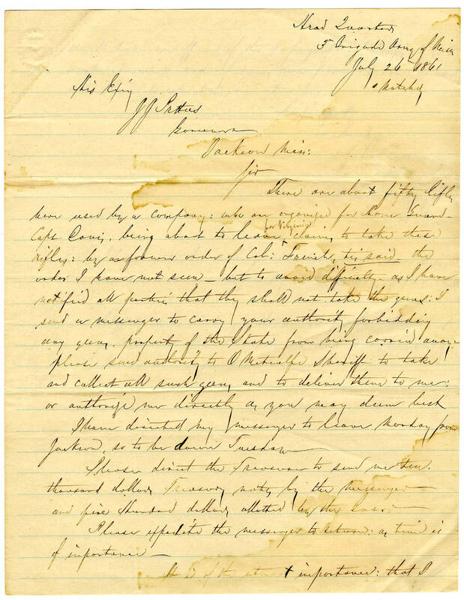 Head Quarters
5 Brigade Army of Miss
July 26 1861
Natchez
His Exly
J J Pettus
Governor
Jackson Miss:
Sir
There are about fifty Rifles
here used by a company: who are organized for home Guard
for Virginia
Capt Cons, being about to leave claims to take these
Rifles: by a former order of Col: his said the
order I have not seen — but to avoid difficulty, as I have
notified all parties that they shall not take the guns. I
send a messenger to carry your authority forbidding
any guns, property of the State from being carried away
please send authority to O Metcalfe Sheriff to take
and collect all such guns and to deliver them to me:
or authorize me directly as you may deem best
I have directed my messenger to leave Monday for
Jackson, so to be down Tuesday
Please direct the Treasurer to send me ten
thousand dollars Treasury notes by the messenger —
and five thousand dollars allotted by the
Please expedite the messenger to return: as time is
of importance —
It is of the importance: that I